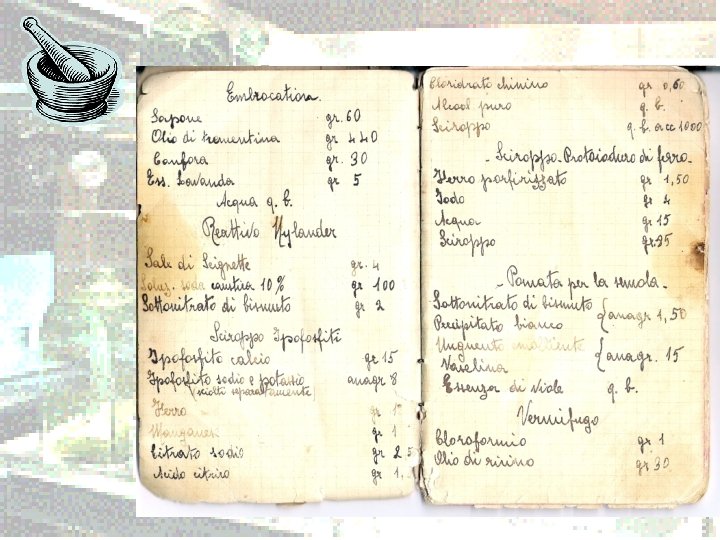 Embrocation.
Sapone gr. 60
Olio di trementina gr 440
Canfora gr. 30
Ess. Lavanda gr 5
Acqua q. b.
Reattivo Nylander
Sale di Seignette gr. 4
Soluz. soda caustica 10% gr 100
Sottonitrato di bismuto gr 2
Sciroppo Ipofosfiti
Ipofosfito calcio gr 15
Ipofosfito sodio e potassio anagr 8
(sciolti separatamente)
Ferro gr 1
Manganese gr 1
Citrato sodio gr 2 5
Acido citrico gr 1,
Cloridrato chinino gr 0,60
Alcool puro q. b.
Sciroppo q. b. a cc 1000
- Sciroppo Protoioduro di ferro -
Ferro porfirizzato gr 1,50
Iodo gr 4
Acqua gr 15
Sciroppo gr. 85
- Pomata per la
Sottonitrato di bismuto
Precipitato bianco { anagr 1,50
Unguento
Vaselina { anagr. 15
Essenza di viole q. b.
Vermifugo
Cloroformio gr 1
Olio di ricino gr 30